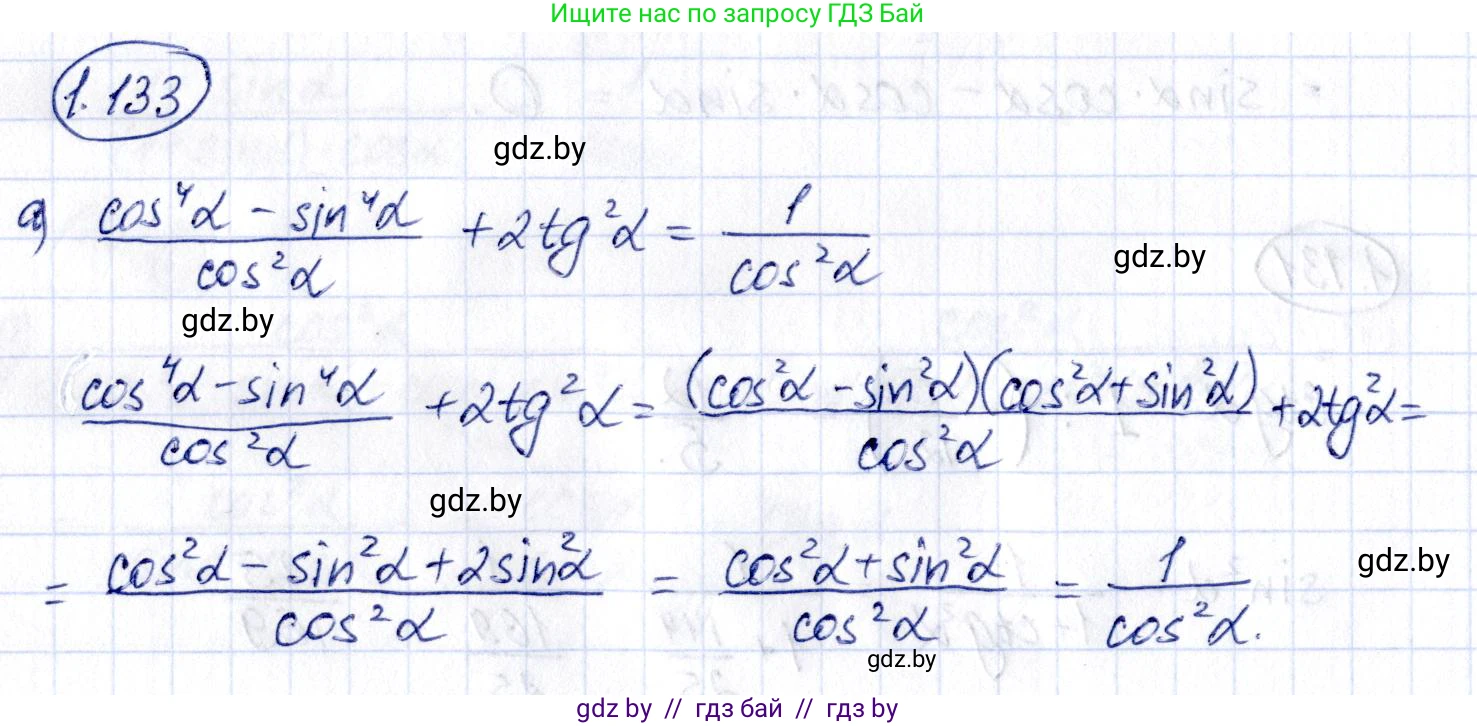 Ищите нас по запросу ГДЗ Бай
1.133
gdz.by
а) (cos⁴α − sin⁴α)/(cos²α) + 2tg²α = 1/(cos²α)
gdz.by
gdz.by
(cos⁴α − sin⁴α)/(cos²α) + 2tg²α = ((cos²α − sin²α)(cos²α + sin²α))/(cos²α) + 2tg²α =
gdz.by
= (cos²α − sin²α + 2sin²α)/(cos²α) = (cos²α + sin²α)/(cos²α) = 1/(cos²α).
gdz.by
gdz.by
gdz by // гдз бай // гдз by